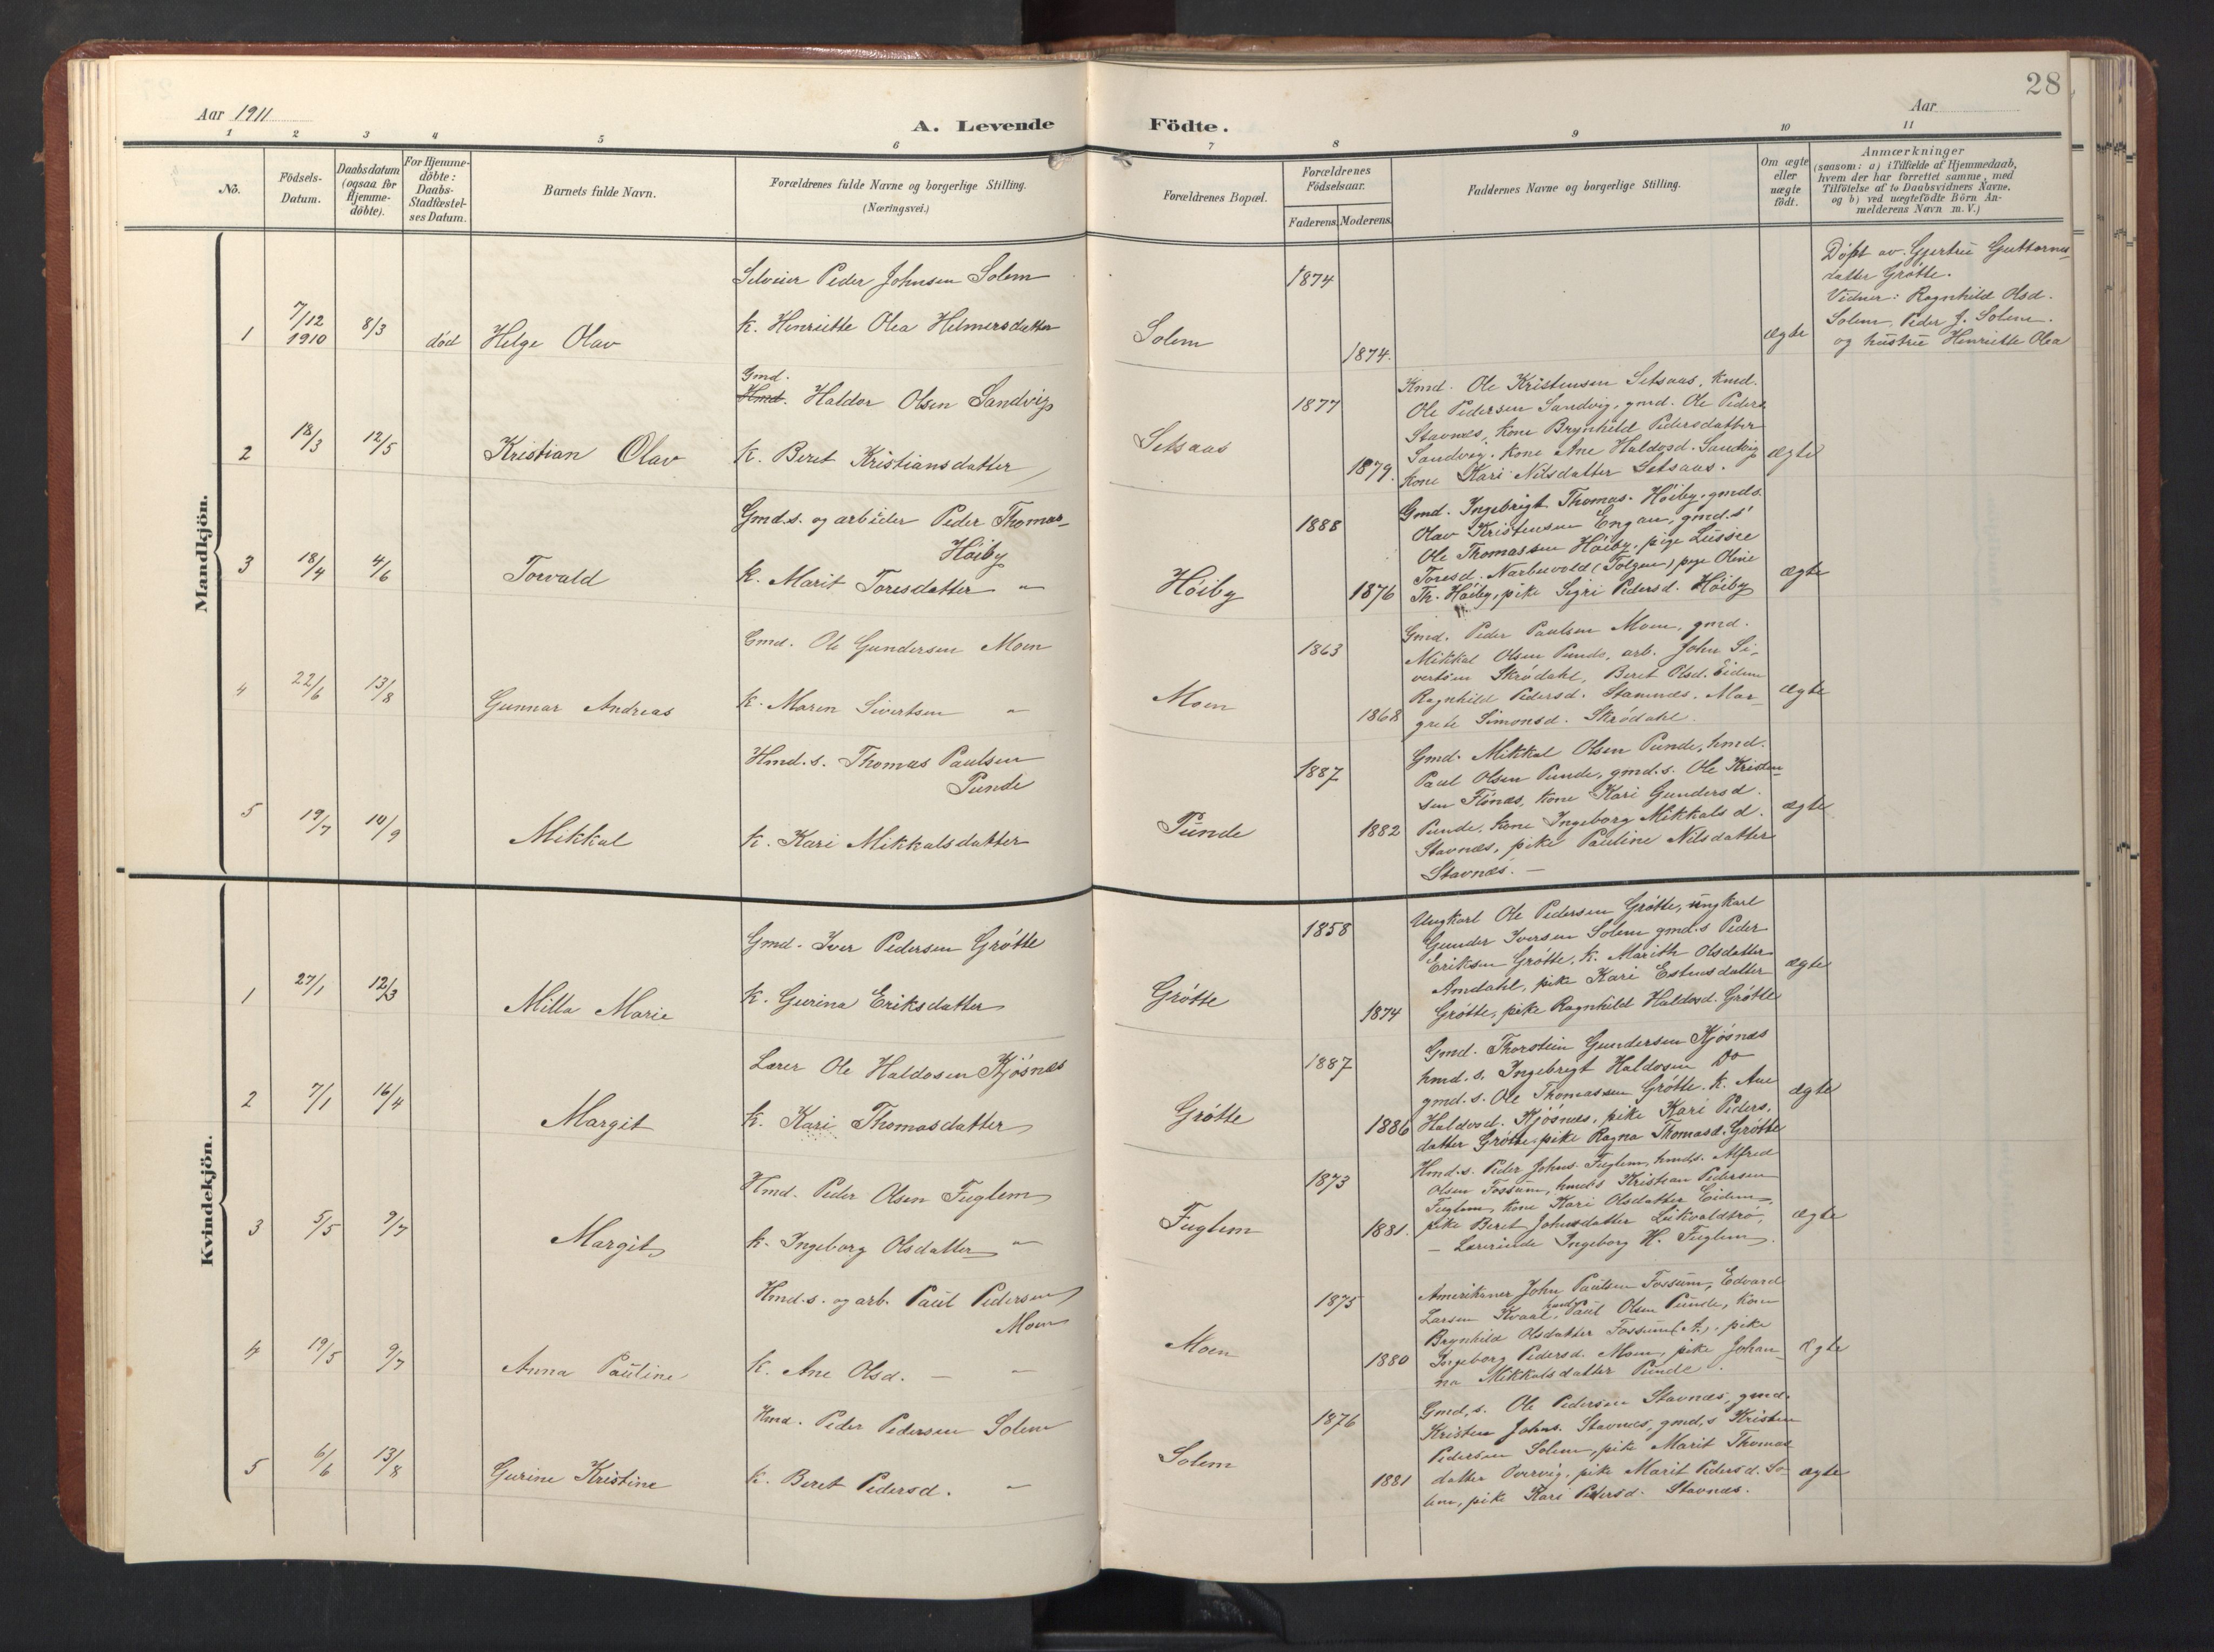 28
Aar 1911
A. Levende Födte.
Aar
1 2 3 4 5 6 7 8 9 10 11
No.
Födsels-
Datum.
Daabsdatum
(ogsaa for
Hjemme-
döbte).
For Hjemme-
döbte:
Daabs-
Stadfæstel-
ses Datum.
Barnets fulde Navn.
Forældrenes fulde Navne og borgerlige Stilling.
(Næringsvei.)
Forældrenes Bopæl.
Forældrenes
Födselsaar.
Faderens.
Moderens.
Faddernes Navne og borgerlige Stilling.
Om ægte
eller
uægte
födt.
Anmærkninger
(saasom: a) i Tilfælde af Hjemmedaab,
hvem der har forrettet samme, med
Tilföielse af to Daabsvidners Navne,
og b) ved uægtefödte Börn An-
melderens Navn m. V.)
Mandkjön.
1
7/12
1910
8/3
död
Helge Olav
Selveier Peder Johnsen Solem
K. Henriette Olea Helmersdatter
Solem
1874
1874.
ægte
Döpt av Gjertru Guttorms-
datter Grötte.
Vidner: Ragnhild Olsd.
Solem, Peder J. Solem.
og hustru Henriette Olea
2
18/3
12/5
Kristian Olav
Gmd.
Hmd. Haldor Olsen Sandvig
K. Beret Kristiansdatter
Setsaas
1877
1879.
Kmd. Ole Kristensen Setsaas, kmd.
Ole Pedersen Sandvig, gmd. Ole Peders.
Stavnæs, kone Brynhild Pedersdatter
Sandvig. kone Ane Haldosd. Sandvig
kone Kari Nilsdatter Setsaas.
ægte
3
18/4
4/6
Torvald
Gmd.s. og arbeider Peder Thomas-
Höiby
K. Marit Toresdatter "
Höiby
1888
1876
Gmd. Ingebrigt Thomas. Höiby, gmd.s.
Olav Kristensen Engan, gmd.s.
Ole Thomassen Höiby, pige Lussie
Toresd. Narbuvold (Tolgen) pige Oline
Th. Höiby, pike Sigri Pedersd. Höiby
ægte
4
22/6
13/8
Gunnar Andreas
Gmd. Ole Gundersen Moen
K. Maren Sivertsen "
Moen
1863
1868
Gmd. Peder Paulsen Moen, gmd.
Mikkal Olsen Punde, arb. John Si-
vertsen Skrödahl, Beret Olsd. Eidem
Ragnhild Pedersd. Stamnes. Mar-
grete Simonsd. Skrödahl.
ægte
5
19/7
10/9
Mikkal
Hmd.s. Thomas Paulsen
Punde
K. Kari Mikkalsdatter
Punde
1887
1882
Gmd. Mikkal Olsen Punde, hmd.
Paul Olsen Punde, gmd.s. Ole Kristen-
sen Flönæs, kone Kari Gundersd.
Punde, kone Ingeborg Mikkals d.
Stavnæs, pike Pauline Nilsdatter
Stavnæs. —
ægte
Kvindekjön.
1
27/1
12/3
Milla Marie
Gmd. Iver Pedersen Grötte
K. Gurina Eriksdatter
Grötte
1858
1874
Ungkarl Ole Pedersen Grötte, ungkarl
Gunder Iversen Solem gmd.s Peder
Eriksen Grötte, K. Marith Olsdatter
Amdahl, pike Kari Estensdatter
Grötte, pike Ragnhild Haldosd. Grötte
ægte
2
7/1
16/4
Margit
Lærer Ole Haldosen Kjösnæs
K. Kari Thomasdatter
Grötte
1887
1886
Gmd. Thorstein Gundersen Kjösnæs
hmd.s. Ingebrigt Haldosen Do
gmd.s. Ole Thomassen Grötte. K. Ane
Haldosd. Kjösnæs, pike Kari Peders.
datter Grötte, pike Ragna Thomasd. Grötte
ægte
3
5/5
9/7
Margit
Hmd. Peder Olsen Fuglem
K. Ingeborg Olsdatter "
Fuglem
1873
1881.
Hmd.s. Peder Johns. Fuglem, hmd.s. Alfred
Olsen Fossum, hmds Kristian Pedersen
Fuglem, kone Kari Olsdatter Eidem,
pike Beret Johnsdatter
— Lærerinde Ingeborg H. Fuglem.
ægte
4
19/5
9/7
Anna Pauline
Hmd.s. og arb. Paul Pedersen
Moen
K. Ane Olsd. — —
Moen
1875
1880
Amerikaner John Paulsen Fossum, Edvard
Larsen Kvaal, hmd. Paul Olsen Punde, kone
Brynhild Olsdatter Fossum (A.), pike
Ingeborg Pedersd. Moen, pike Johan-
na Mikkalsdatter Punde.
ægte
5
6/6
13/8
Gurine Kristine
Hmd. Peder Pedersen Solem
K. Beret Pedersd. "
Solem
1876
1881
Gmd.s. Ole Pedersen Stavnæs, gmd.
Kristen Johns. Stavnæs, gmd.s Kristen
Pedersen Solem, pike Marit Thomas
datter Overvig, pike Marit Pedersd. So-
lem, pike Kari Pedersd. Stavnæs.
ægte